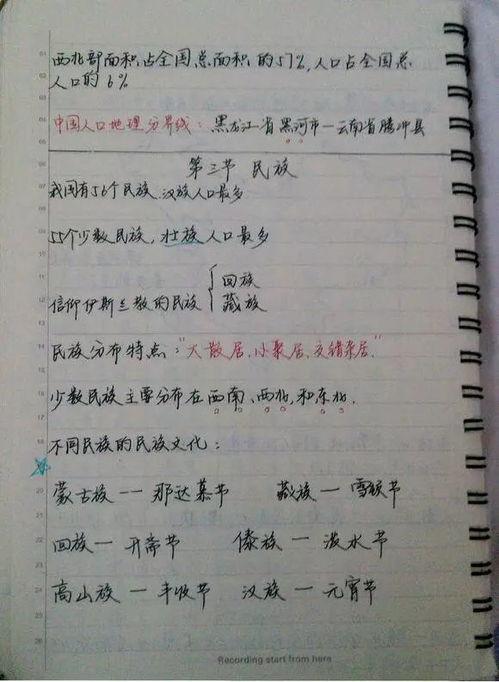 西北部面积占全国总面积的57%,人口占全国总
人口的6%
中国人口地理分界线:黑龙江省黑河市—云南省腾冲县
第三节 民族
我国有56个民族,汉族人口最多
55个少数民族,壮族人口最多
回族
信仰伊斯兰教的民族{
藏族
民族分布特点:"大散居,小聚居,交错杂居"
少数民族主要分布在西南、西北,和东北.
不同民族的民族文化:
蒙古族—那达慕节 藏族—雪顿节
回族—开斋节 傣族—泼水节
高山族—丰收节 汉族—元宵节
Recording start from here